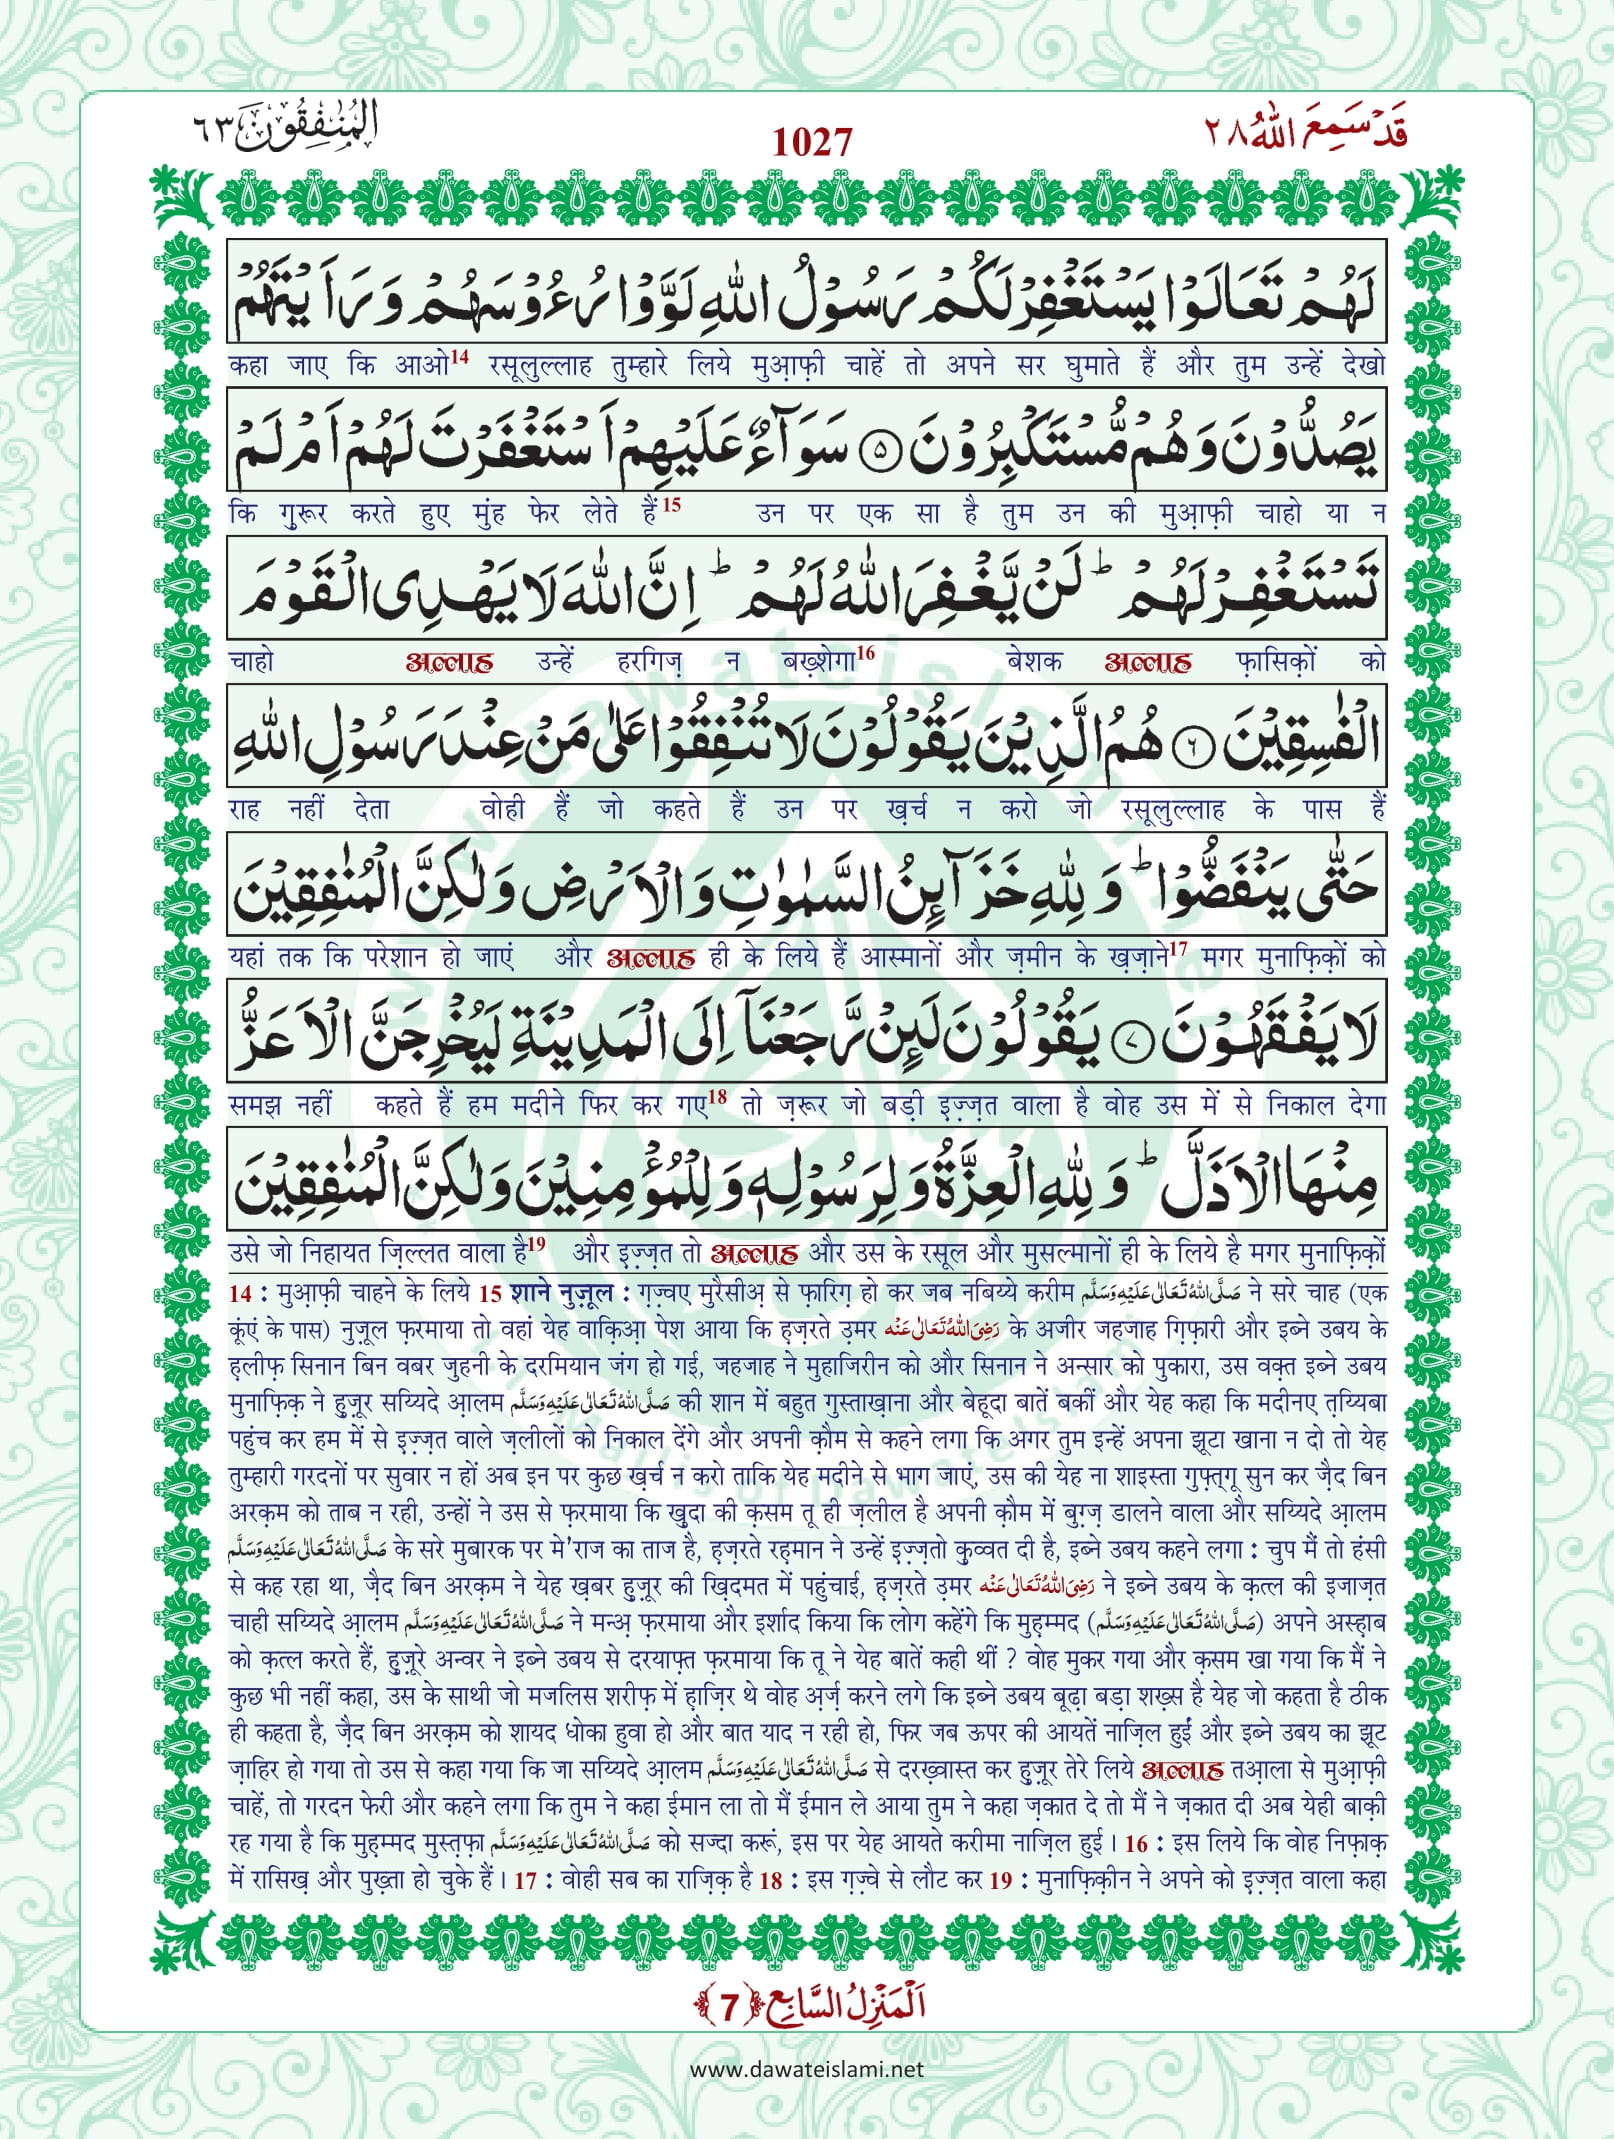 قَدْ سَمِعَ اللّٰهُ ٢٨
1027
الْمُنٰفِقُوْنَ ٦٣
لَهُمْ تَعَالَوْا يَسْتَغْفِرْ لَكُمْ رَسُوْلُ اللّٰهِ لَوَّوْا رُءُوْسَهُمْ وَ رَاَيْتَهُمْ
कहा जाए कि आओ14 रसूलुल्लाह तुम्हारे लिये मुआ़फ़ी चाहें तो अपने सर घुमाते हैं और तुम उन्हें देखो
يَصُدُّوْنَ وَ هُمْ مُّسْتَكْبِرُوْنَ ﴿٥﴾ سَوَآءٌ عَلَيْهِمْ اَسْتَغْفَرْتَ لَهُمْ اَمْ لَمْ
कि गुरूर करते हुए मुंह फेर लेते हैं15 उन पर एक सा है तुम उन की मुआ़फ़ी चाहो या न
تَسْتَغْفِرْ لَهُمْ ؕ لَنْ يَّغْفِرَ اللّٰهُ لَهُمْ ؕ اِنَّ اللّٰهَ لَا يَهْدِى الْقَوْمَ
चाहो अल्लाह उन्हें हरगिज़ न बख़्शेगा16 बेशक अल्लाह फ़ासिक़ों को
الْفٰسِقِيْنَ ﴿٦﴾ هُمُ الَّذِيْنَ يَقُوْلُوْنَ لَا تُنْفِقُوْا عَلٰى مَنْ عِنْدَ رَسُوْلِ اللّٰهِ
राह नहीं देता वोही हैं जो कहते हैं उन पर ख़र्च न करो जो रसूलुल्लाह के पास हैं
حَتّٰى يَنْفَضُّوْا ؕ وَ لِلّٰهِ خَزَآئِنُ السَّمٰوٰتِ وَ الْاَرْضِ وَ لٰكِنَّ الْمُنٰفِقِيْنَ
यहां तक कि परेशान हो जाएं और अल्लाह ही के लिये हैं आस्मानों और ज़मीन के ख़ज़ाने17 मगर मुनाफ़िक़ों को
لَا يَفْقَهُوْنَ ﴿٧﴾ يَقُوْلُوْنَ لَئِنْ رَّجَعْنَاۤ اِلَى الْمَدِيْنَةِ لَيُخْرِجَنَّ الْاَعَزُّ
समझ नहीं कहते हैं हम मदीने फिर कर गए18 तो ज़रूर जो बड़ी इ़ज़्ज़त वाला है वोह उस में से निकाल देगा
مِنْهَا الْاَذَلَّ ؕ وَ لِلّٰهِ الْعِزَّةُ وَ لِرَسُوْلِهٖ وَ لِلْمُؤْمِنِيْنَ وَ لٰكِنَّ الْمُنٰفِقِيْنَ
उसे जो निहायत ज़िल्लत वाला है19 और इ़ज़्ज़त तो अल्लाह और उस के रसूल और मुसल्मानों ही के लिये है मगर मुनाफ़िक़ों
14 : मुआ़फ़ी चाहने के लिये 15 शाने नुज़ूल : ग़ज़्वए मुरैसीअ़ से फ़ारिग़ हो कर जब नबिय्ये करीम صَلَّى اللهُ تَعَالٰى عَلَيْهِ وَسَلَّم ने सरे चाह (एक
कूंएं के पास) नुज़ूल फ़रमाया तो वहां येह वाक़िआ़ पेश आया कि ह़ज़रते उ़मर رَضِىَ اللهُ تَعَالٰى عَنْه के अजीर जहजाह गि़फ़ारी और इब्ने उबय के
ह़लीफ़ सिनान बिन वबर जुहनी के दरमियान जंग हो गई, जहजाह ने मुहाजिरीन को और सिनान ने अन्सार को पुकारा, उस वक़्त इब्ने उबय
मुनाफ़िक़ ने हु़ज़ूर सय्यिदे आ़लम صَلَّى اللهُ تَعَالٰى عَلَيْهِ وَسَلَّم की शान में बहुत गुस्ताख़ाना और बेहूदा बातें बकीं और येह कहा कि मदीनए त़य्यिबा
पहुंच कर हम में से इ़ज़्ज़त वाले ज़लीलों को निकाल देंगे और अपनी क़ौम से कहने लगा कि अगर तुम इन्हें अपना झूटा खाना न दो तो येह
तुम्हारी गरदनों पर सुवार न हों अब इन पर कुछ ख़र्च न करो ताकि येह मदीने से भाग जाएं, उस की येह ना शाइस्ता गुफ़्त्गू सुन कर जै़द बिन
अरक़म को ताब न रही, उन्हों ने उस से फ़रमाया कि खु़दा की क़सम तू ही ज़लील है अपनी क़ौम में बुग़्ज़ डालने वाला और सय्यिदे आ़लम
صَلَّى اللهُ تَعَالٰى عَلَيْهِ وَسَلَّم के सरे मुबारक पर मे'राज का ताज है, ह़ज़रते रह़मान ने उन्हें इ़ज़्ज़तो कुव्वत दी है, इब्ने उबय कहने लगा : चुप मैं तो हंसी
से कह रहा था, जै़द बिन अरक़म ने येह ख़बर हु़ज़ूर की ख़िदमत में पहुंचाई, ह़ज़रते उ़मर رَضِىَ اللهُ تَعَالٰى عَنْه ने इब्ने उबय के क़त्ल की इजाज़त
चाही सय्यिदे आ़लम صَلَّى اللهُ تَعَالٰى عَلَيْهِ وَسَلَّم ने मन्अ़ फ़रमाया और इर्शाद किया कि लोग कहेंगे कि मुह़म्मद (صَلَّى اللهُ تَعَالٰى عَلَيْهِ وَسَلَّم) अपने अस्ह़ाब
को क़त्ल करते हैं, हु़ज़ूरे अन्वर ने इब्ने उबय से दरयाफ़्त फ़रमाया कि तू ने येह बातें कही थीं ? वोह मुकर गया और क़सम खा गया कि मैं ने
कुछ भी नहीं कहा, उस के साथी जो मजलिस शरीफ़ में ह़ाज़िर थे वोह अ़र्ज़ करने लगे कि इब्ने उबय बूढ़ा बड़ा शख़्स है येह जो कहता है ठीक
ही कहता है, जै़द बिन अरक़म को शायद धोका हुवा हो और बात याद न रही हो, फिर जब ऊपर की आयतें नाज़िल हुईं और इब्ने उबय का झूट
ज़ाहिर हो गया तो उस से कहा गया कि जा सय्यिदे आ़लम صَلَّى اللهُ تَعَالٰى عَلَيْهِ وَسَلَّم से दरख़्वास्त कर हु़ज़ूर तेरे लिये अल्लाह तआ़ला से मुआ़फ़ी
चाहें, तो गरदन फेरी और कहने लगा कि तुम ने कहा ईमान ला तो मैं ईमान ले आया तुम ने कहा ज़कात दे तो मैं ने ज़कात दी अब येही बाक़ी
रह गया है कि मुह़म्मद मुस्त़फ़ा صَلَّى اللهُ تَعَالٰى عَلَيْهِ وَسَلَّم को सज्दा करूं, इस पर येह आयते करीमा नाज़िल हुई । 16 : इस लिये कि वोह निफ़ाक़
में रासिख़ और पुख़्ता हो चुके हैं । 17 : वोही सब का राज़िक़ है 18 : इस ग़ज़्वे से लौट कर 19 : मुनाफ़िक़ीन ने अपने को इ़ज़्ज़त वाला कहा
اَلْمَنْزِلُ السَّابِع ﴿7﴾
www.dawateislami.net